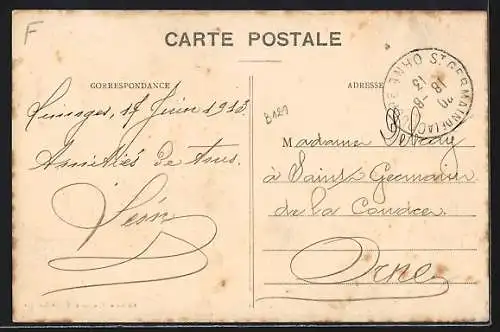 F
CARTE POSTALE
CORRESPONDANCE
ADRESSE
Limoges, 17 Juin 1913
Amitiés de tous
B489
Madame
à Saint Germain
de la Coudre
Orne
ST GERMAIN DE LA C ORNE
18 -6
13